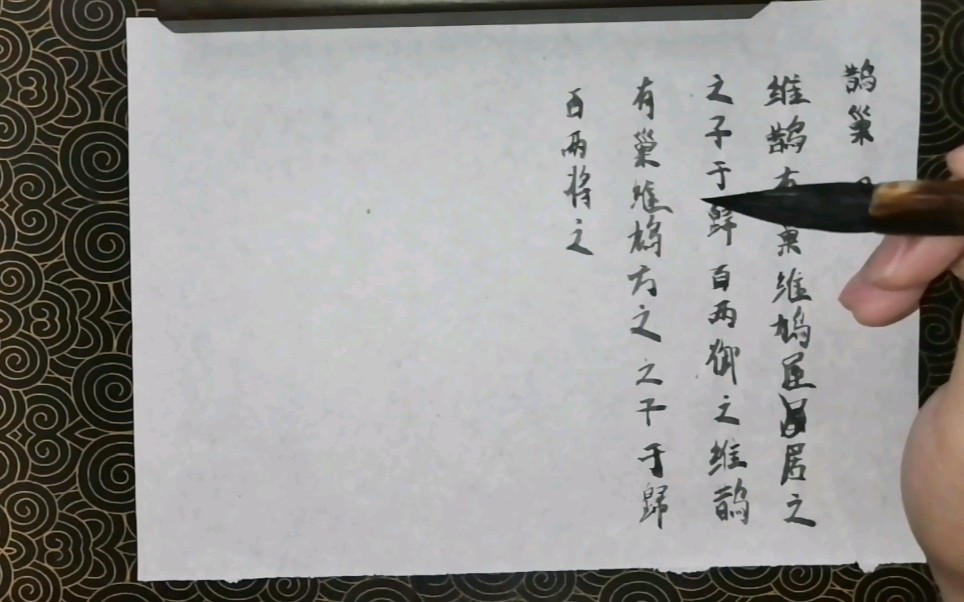 鹊巢
维鹊有巢维鸠居之
之子于歸百两御之维鹊
有巢维鸠方之之子于歸
百两将之